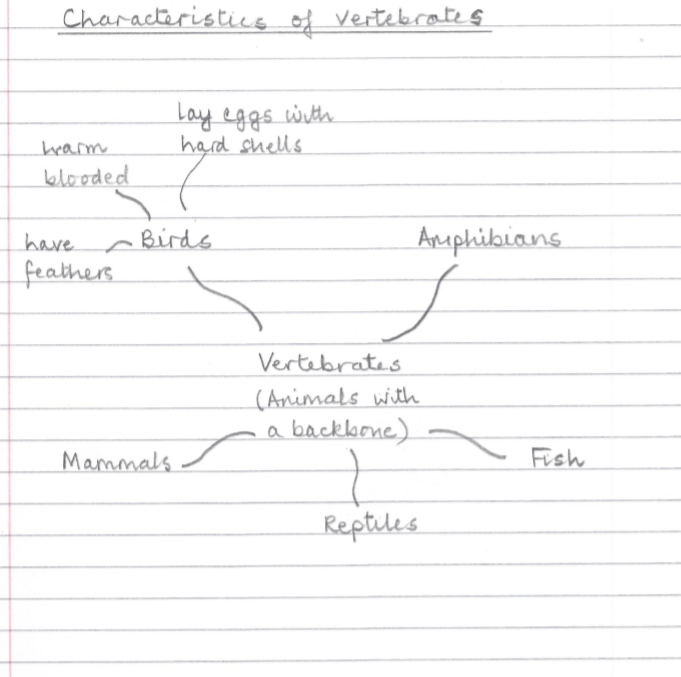 Characteristics of vertebrates
lay eggs with
hard shells
warm
blooded
have
feathers
Birds
Amphibians
Vertebrates
(Animals with
a backbone)
Mammals
Fish
Reptiles